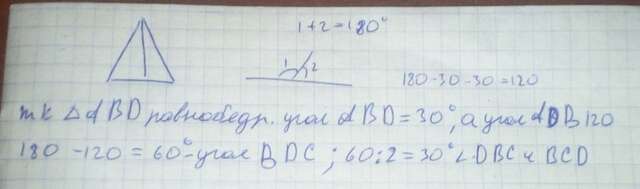 1+2=180°
1 2
180-30-30=120
тк △ABD равнобедр. угол ABD=30°, а угол ADB 120
180-120=60°-угол BDC; 60:2=30°∠DBC и BCD